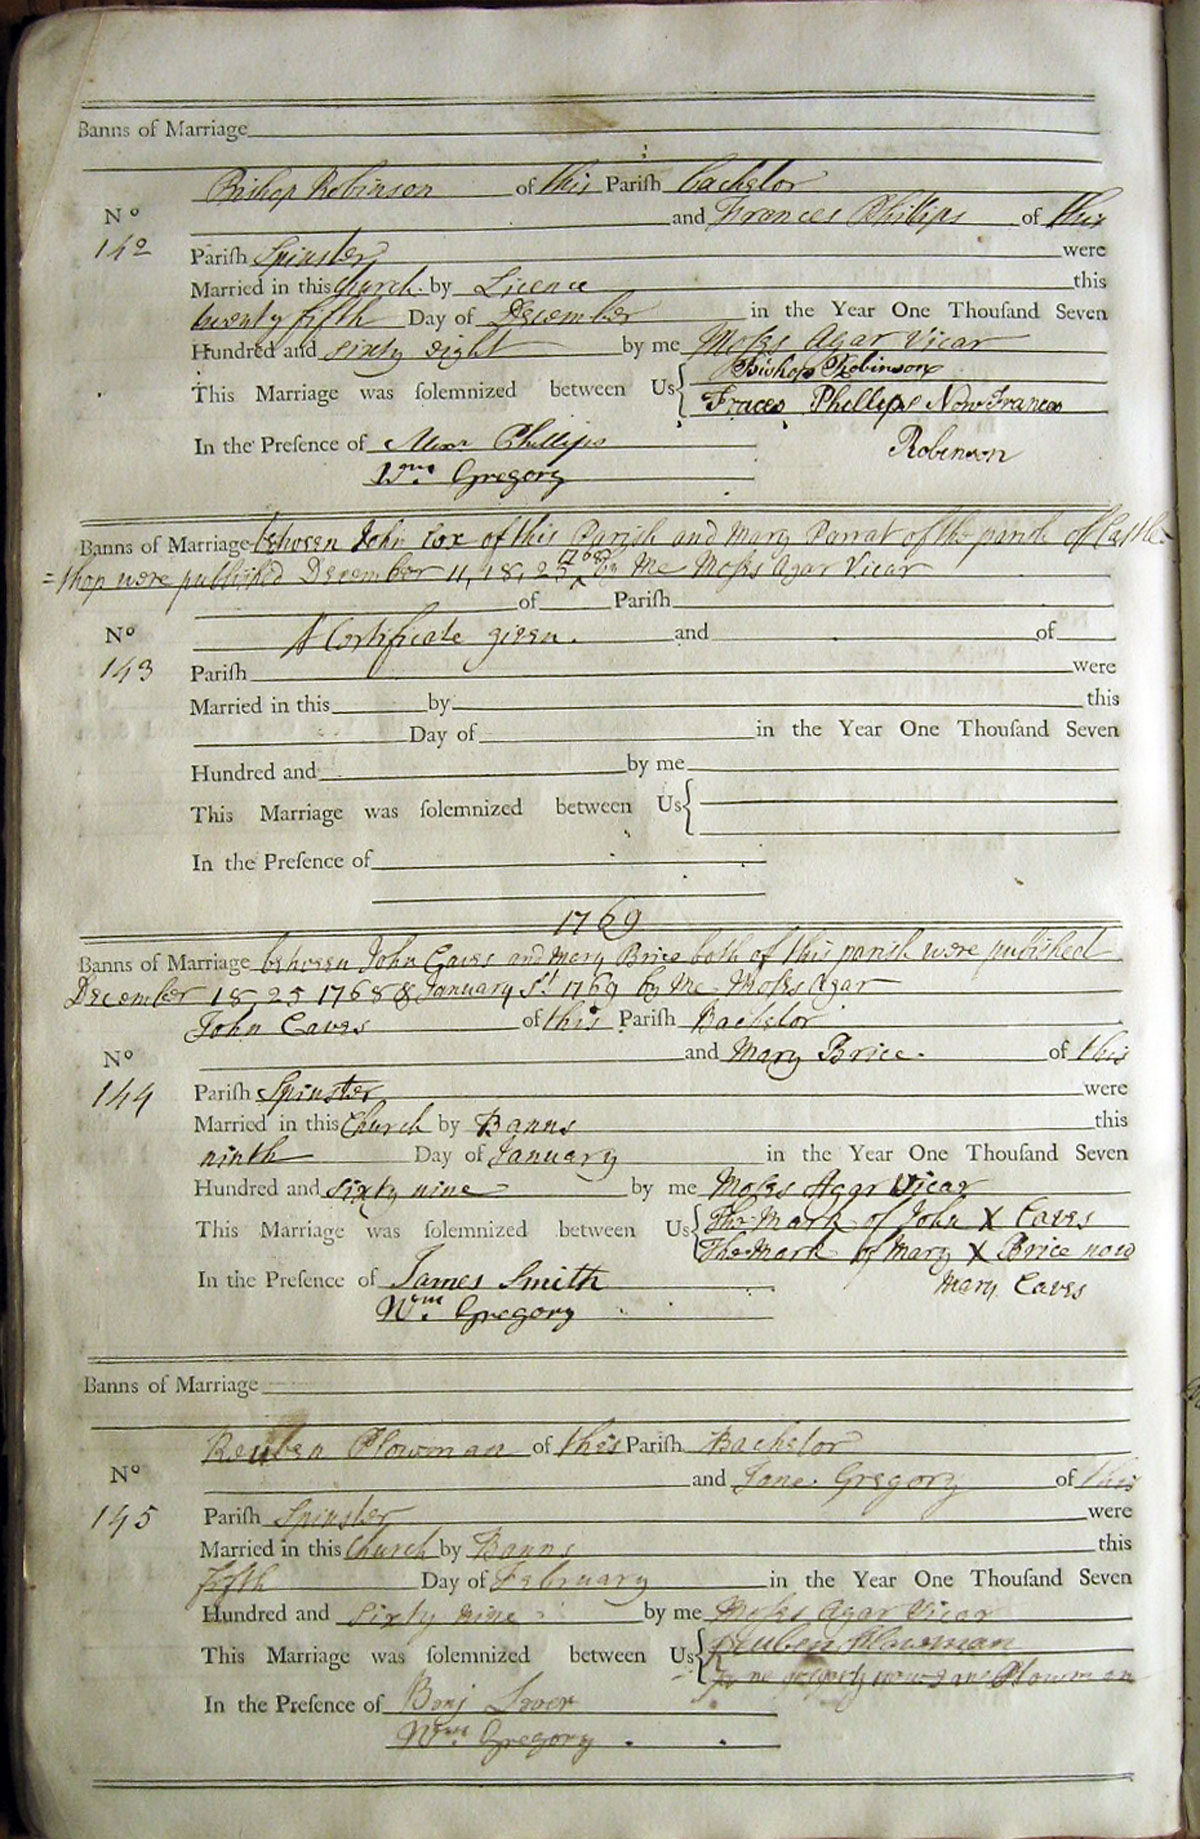 Banns of Marriage
Bishop Robinson of this Parish bachelor
No
142
and Frances Phillips of this
Pariſh Spinster were
Married in this Church by Licence this
twenty fifth Day of December in the Year One Thouſand Seven
Hundred and sixty eight by me Moſes Agar Vicar
This Marriage was ſolemnized between Us { Bishop Robinson
Fraces Phellips Now Frances
Robinson
In the Preſence of Phillips
Wm. Gregory
Banns of Marriage between John Cox of this Parish and Mary Parrat of the parish of Castle
=thop were published December 11, 18, 25 1768 by Me Moſes Agar Vicar
of Pariſh
No
143
A Certificate given. and of
Pariſh were
Married in this by this
Day of in the Year One Thouſand Seven
Hundred and by me
This Marriage was ſolemnized between Us {
In the Preſence of
1769
Banns of Marriage between John Eaves and Mary Brice both of this parish were published
December 18, 25 1768 & January 1st 1769 by Me Moſes Agar
John Eaves of this Pariſh Bachelor
No
144
and Mary Brice. of this
Pariſh Spinster were
Married in this Church by Banns this
ninth Day of January in the Year One Thouſand Seven
Hundred and sixty nine by me Moſes Agar Vicar
This Marriage was ſolemnized between Us { The Mark of John X Eaves
The Mark of Mary X Brice now
Mary Eaves
In the Preſence of James Smith
Wm. Gregory
Banns of Marriage
Reuben Plowman of this Pariſh Bachelor
No
145
and Jane Gregory of this
Pariſh Spinster were
Married in this Church by Banns this
fifth Day of February in the Year One Thouſand Seven
Hundred and sixty nine by me Moſes Agar Vicar
This Marriage was ſolemnized between Us { Reuben Plowman
Jane gregory now Jane Plowman
In the Preſence of Benj
Wm. Gregory